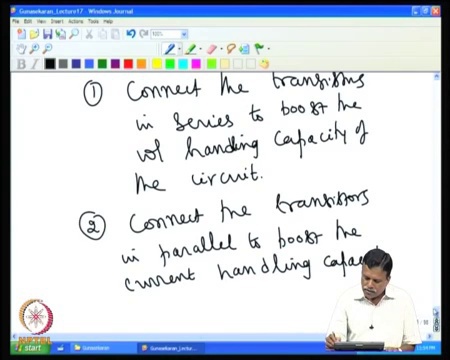 Gunasekaran_Lecture17 - Windows Journal
File Edit View Insert Actions Tools Help
① Connect the transistors
in series to boost the
vol handling capacity of
the circuit.
② Connect the transistors
in parallel to boost the
current handling capac
start
Gunasekaran
Gunasekaran_Lectur...